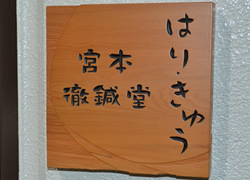 はり・きゅう
宮本
徹鍼堂